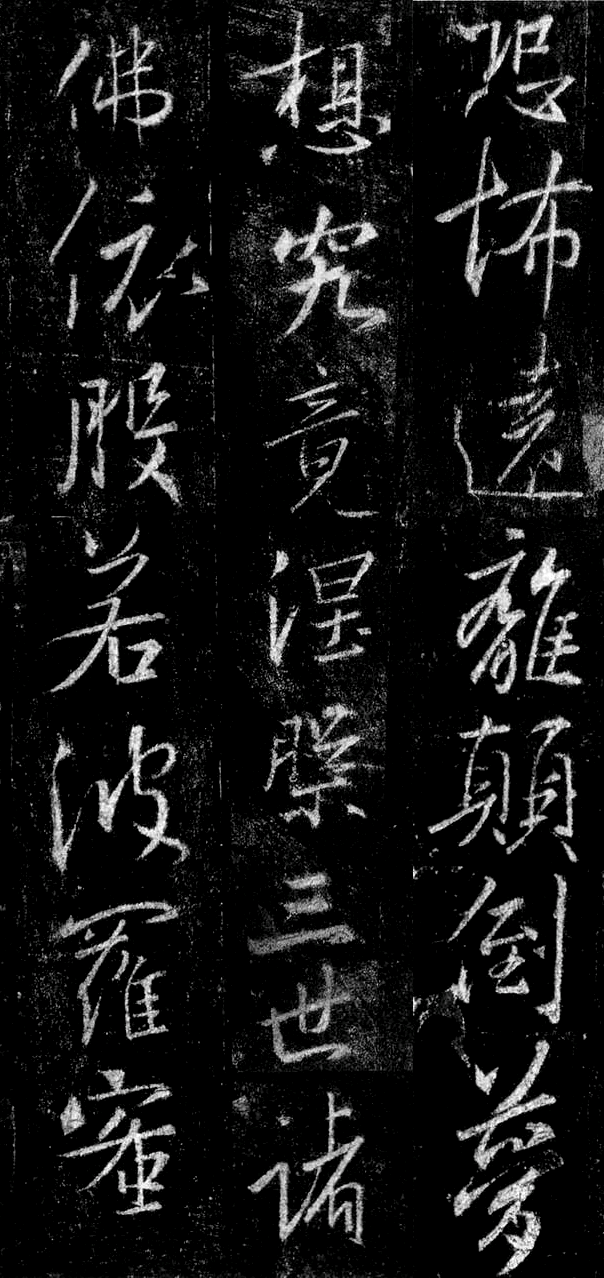 恐怖遠離顛倒夢
想究竟涅槃三世諸
佛依般若波羅蜜